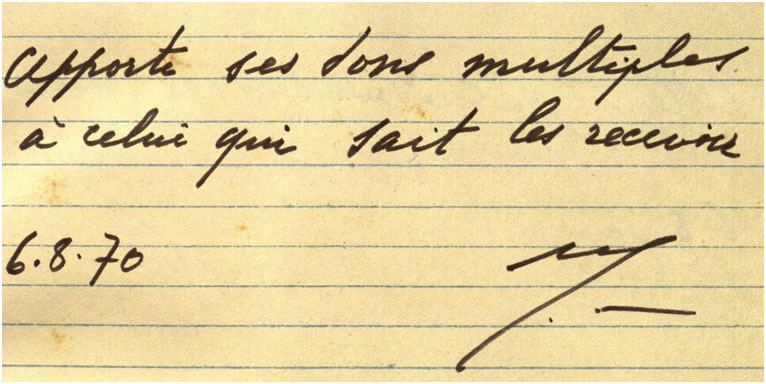 apporte ses dons multiples
à celui qui sait les recevoir
6.8.70